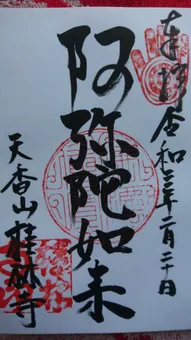 奉拝 令和三年二月二十日
阿弥陀如来
天香山桂林寺